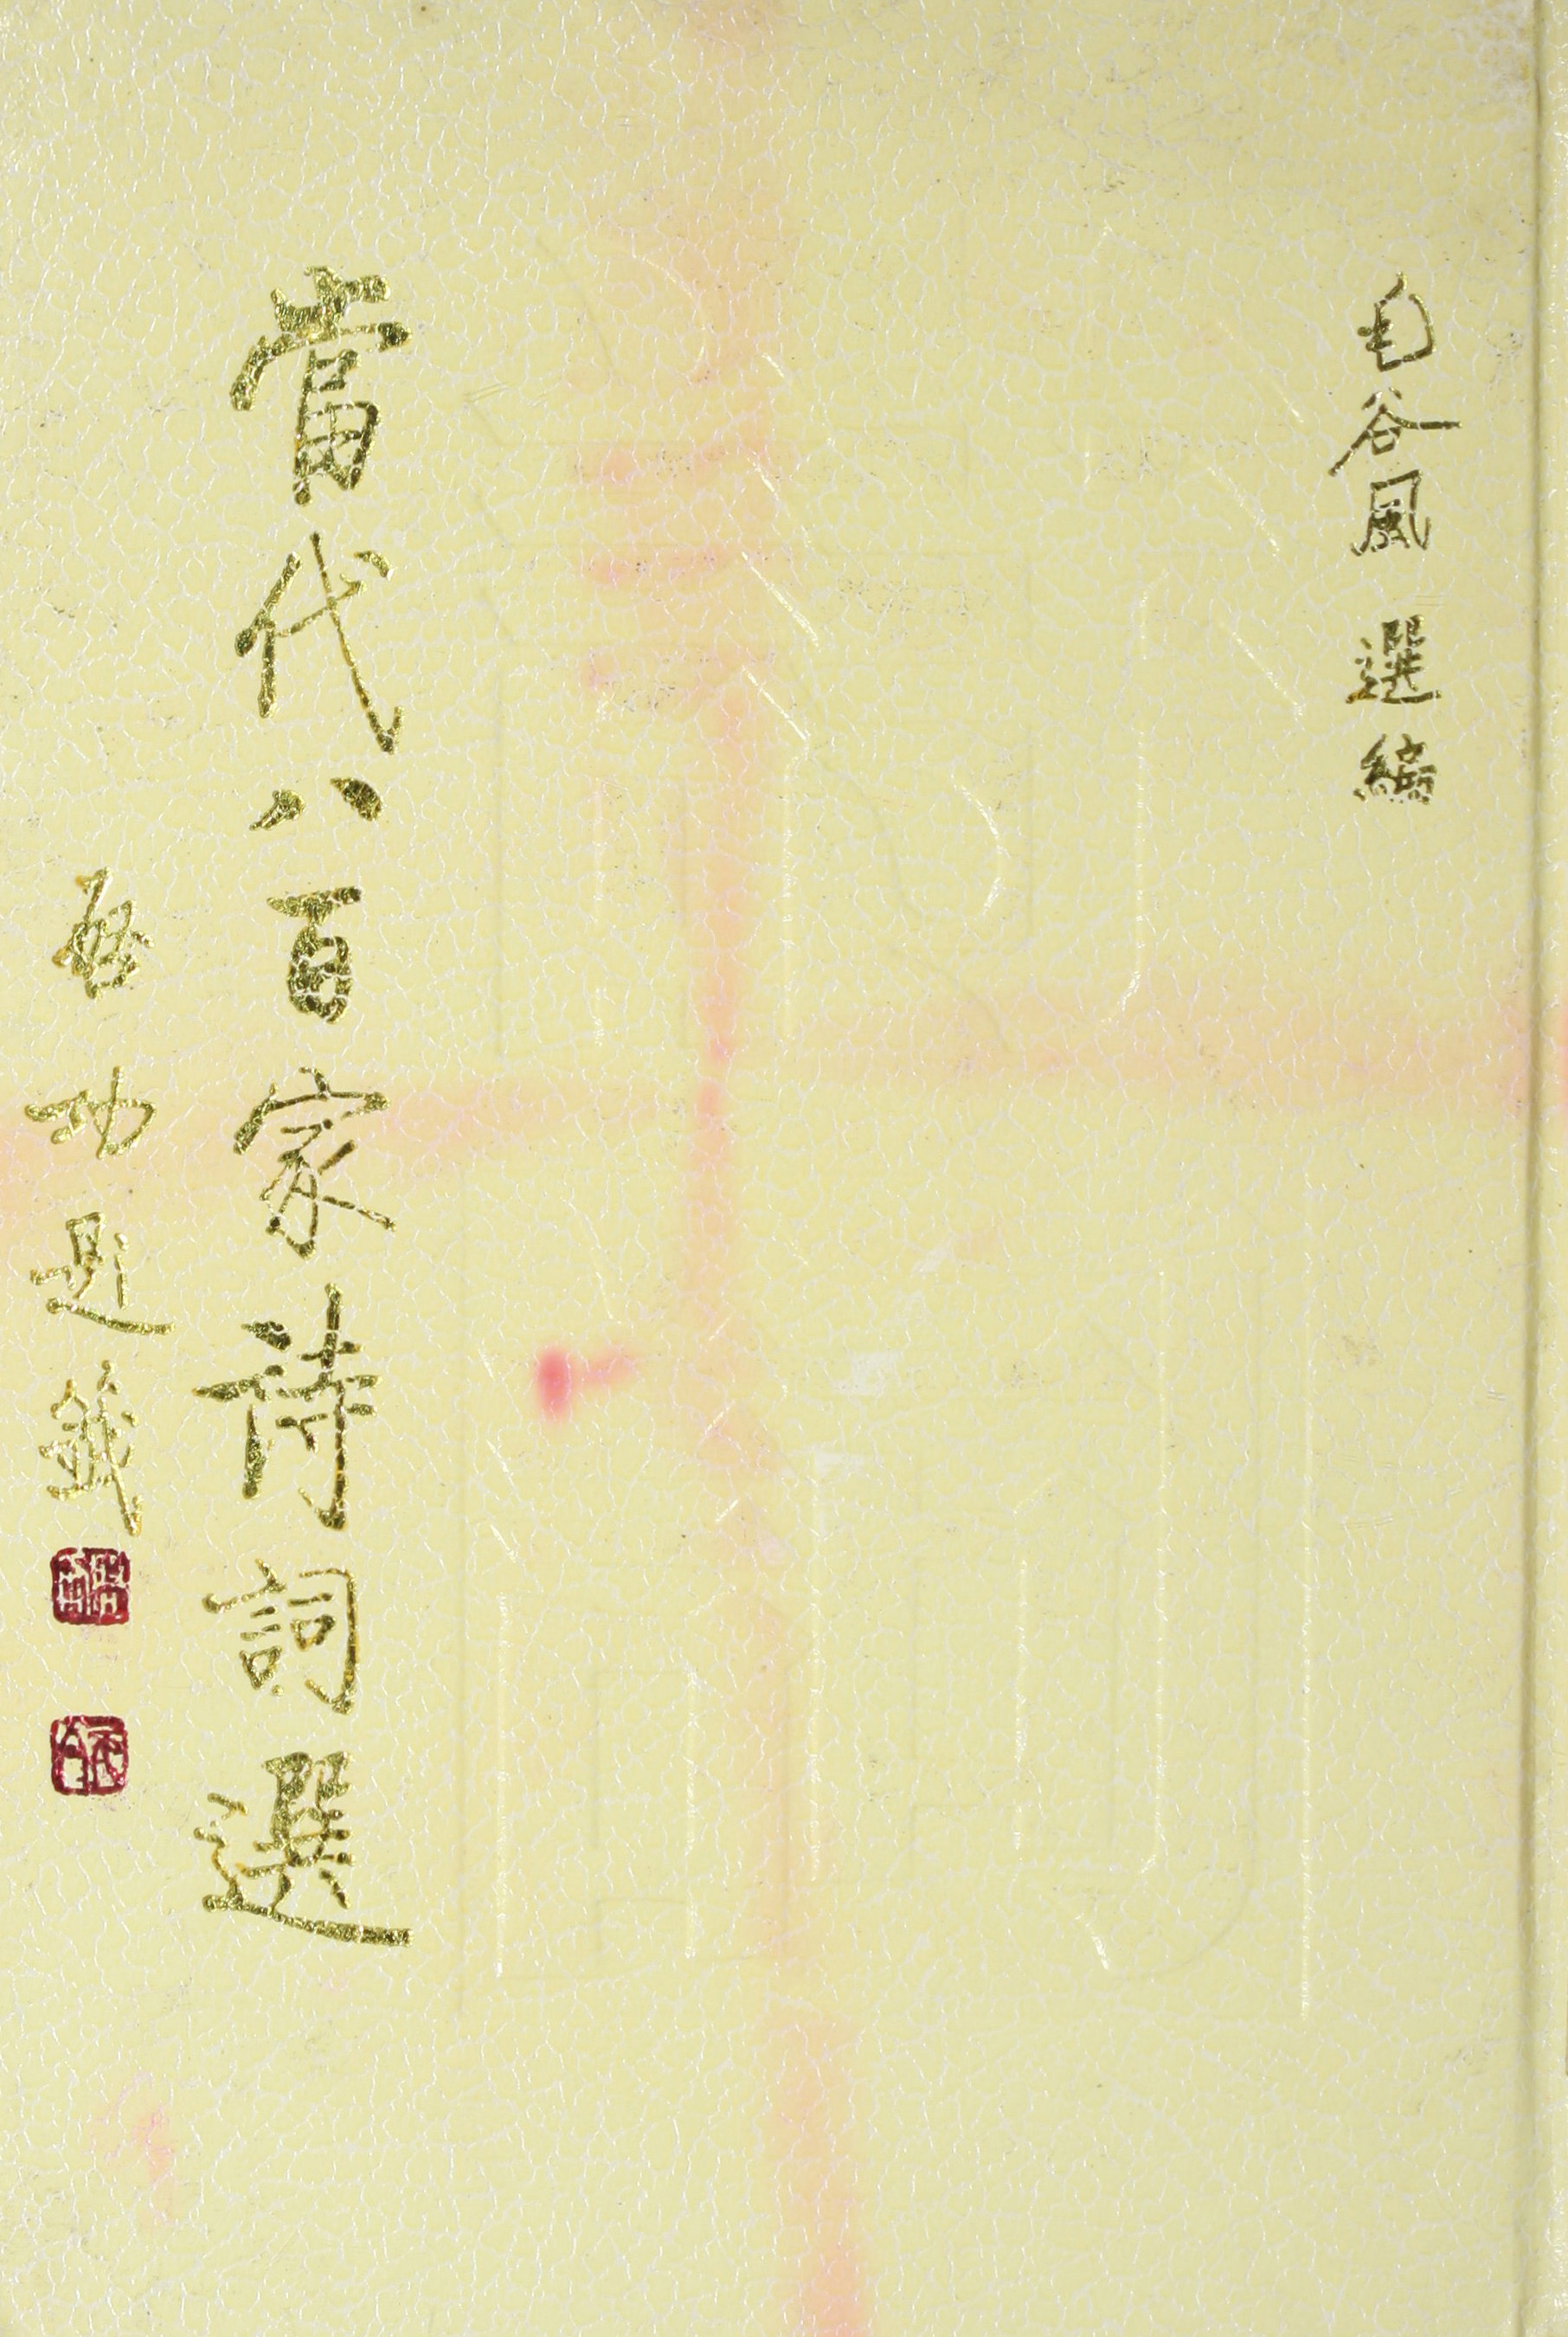 毛谷風 選編
當代八百家詩詞選
啟功題籤